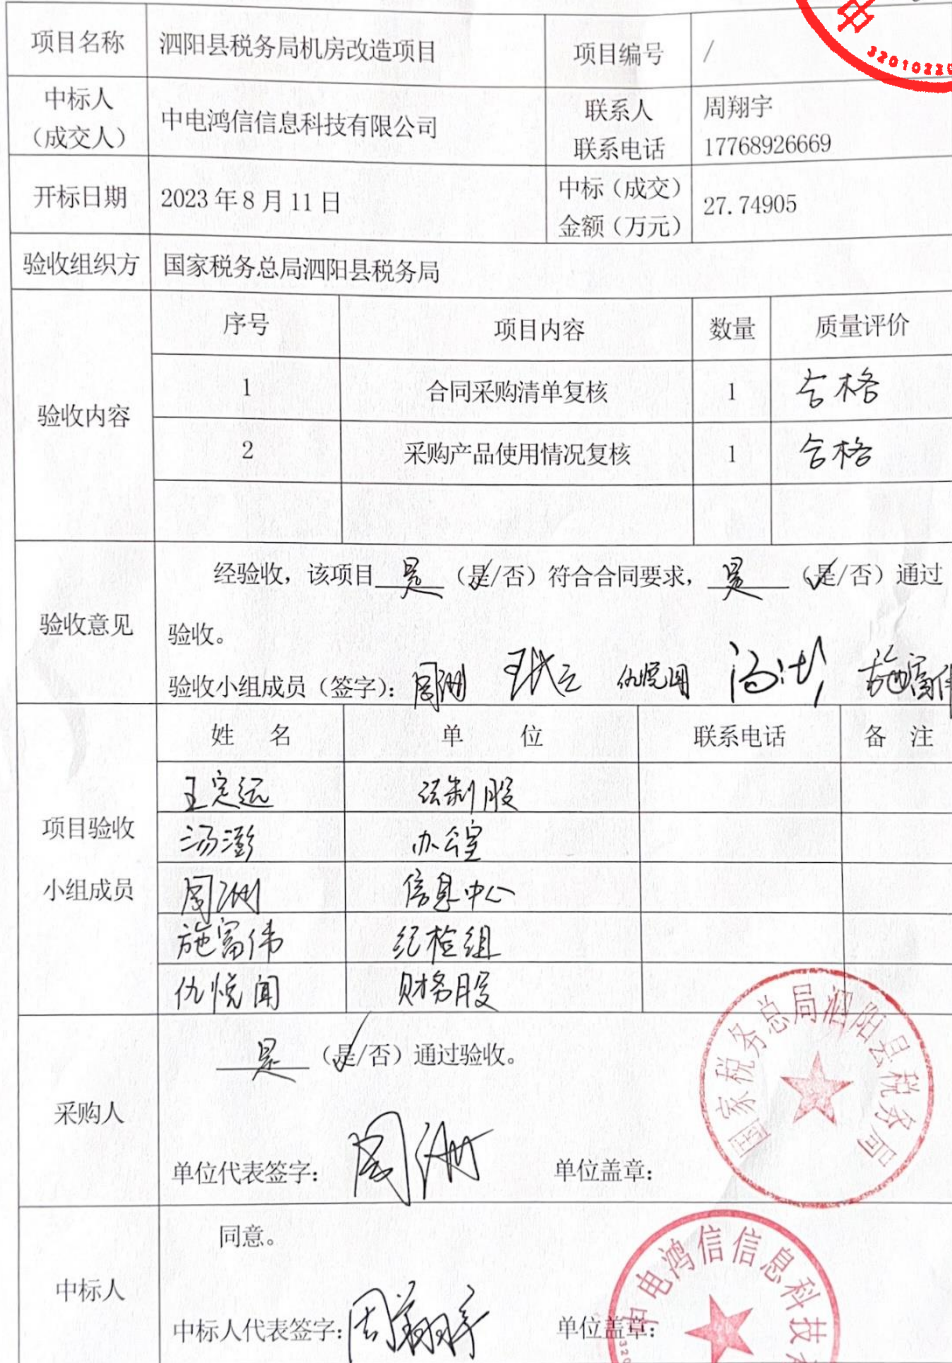 中
3201023
项目名称 泗阳县税务局机房改造项目 项目编号 /
中标人 联系人 周翔宇
(成交人) 中电鸿信信息科技有限公司 联系电话 17768926669
开标日期 2023年8月11日 中标(成交) 27.74905
金额(万元)
验收组织方 国家税务总局泗阳县税务局
验收内容 序号 项目内容 数量 质量评价
1 合同采购清单复核 1 合格
2 采购产品使用情况复核 1 合格
验收意见 经验收,该项目 是 (是/否)符合合同要求, 是 (是/否)通过
验收。
验收小组成员(签字): 周洲 仇悦闻 施富伟
项目验收小组成员 姓 名 单 位 联系电话 备 注
法制股
汤澎 办公室
周洲 信息中心
施富伟 纪检组
仇悦闻 财务股
采购人 是 (是/否)通过验收。
单位代表签字: 周洲 单位盖章:
国家税务总局泗阳县税务局
中标人 同意。
中标人代表签字: 周翔宇 单位盖章:
中电鸿信信息科技